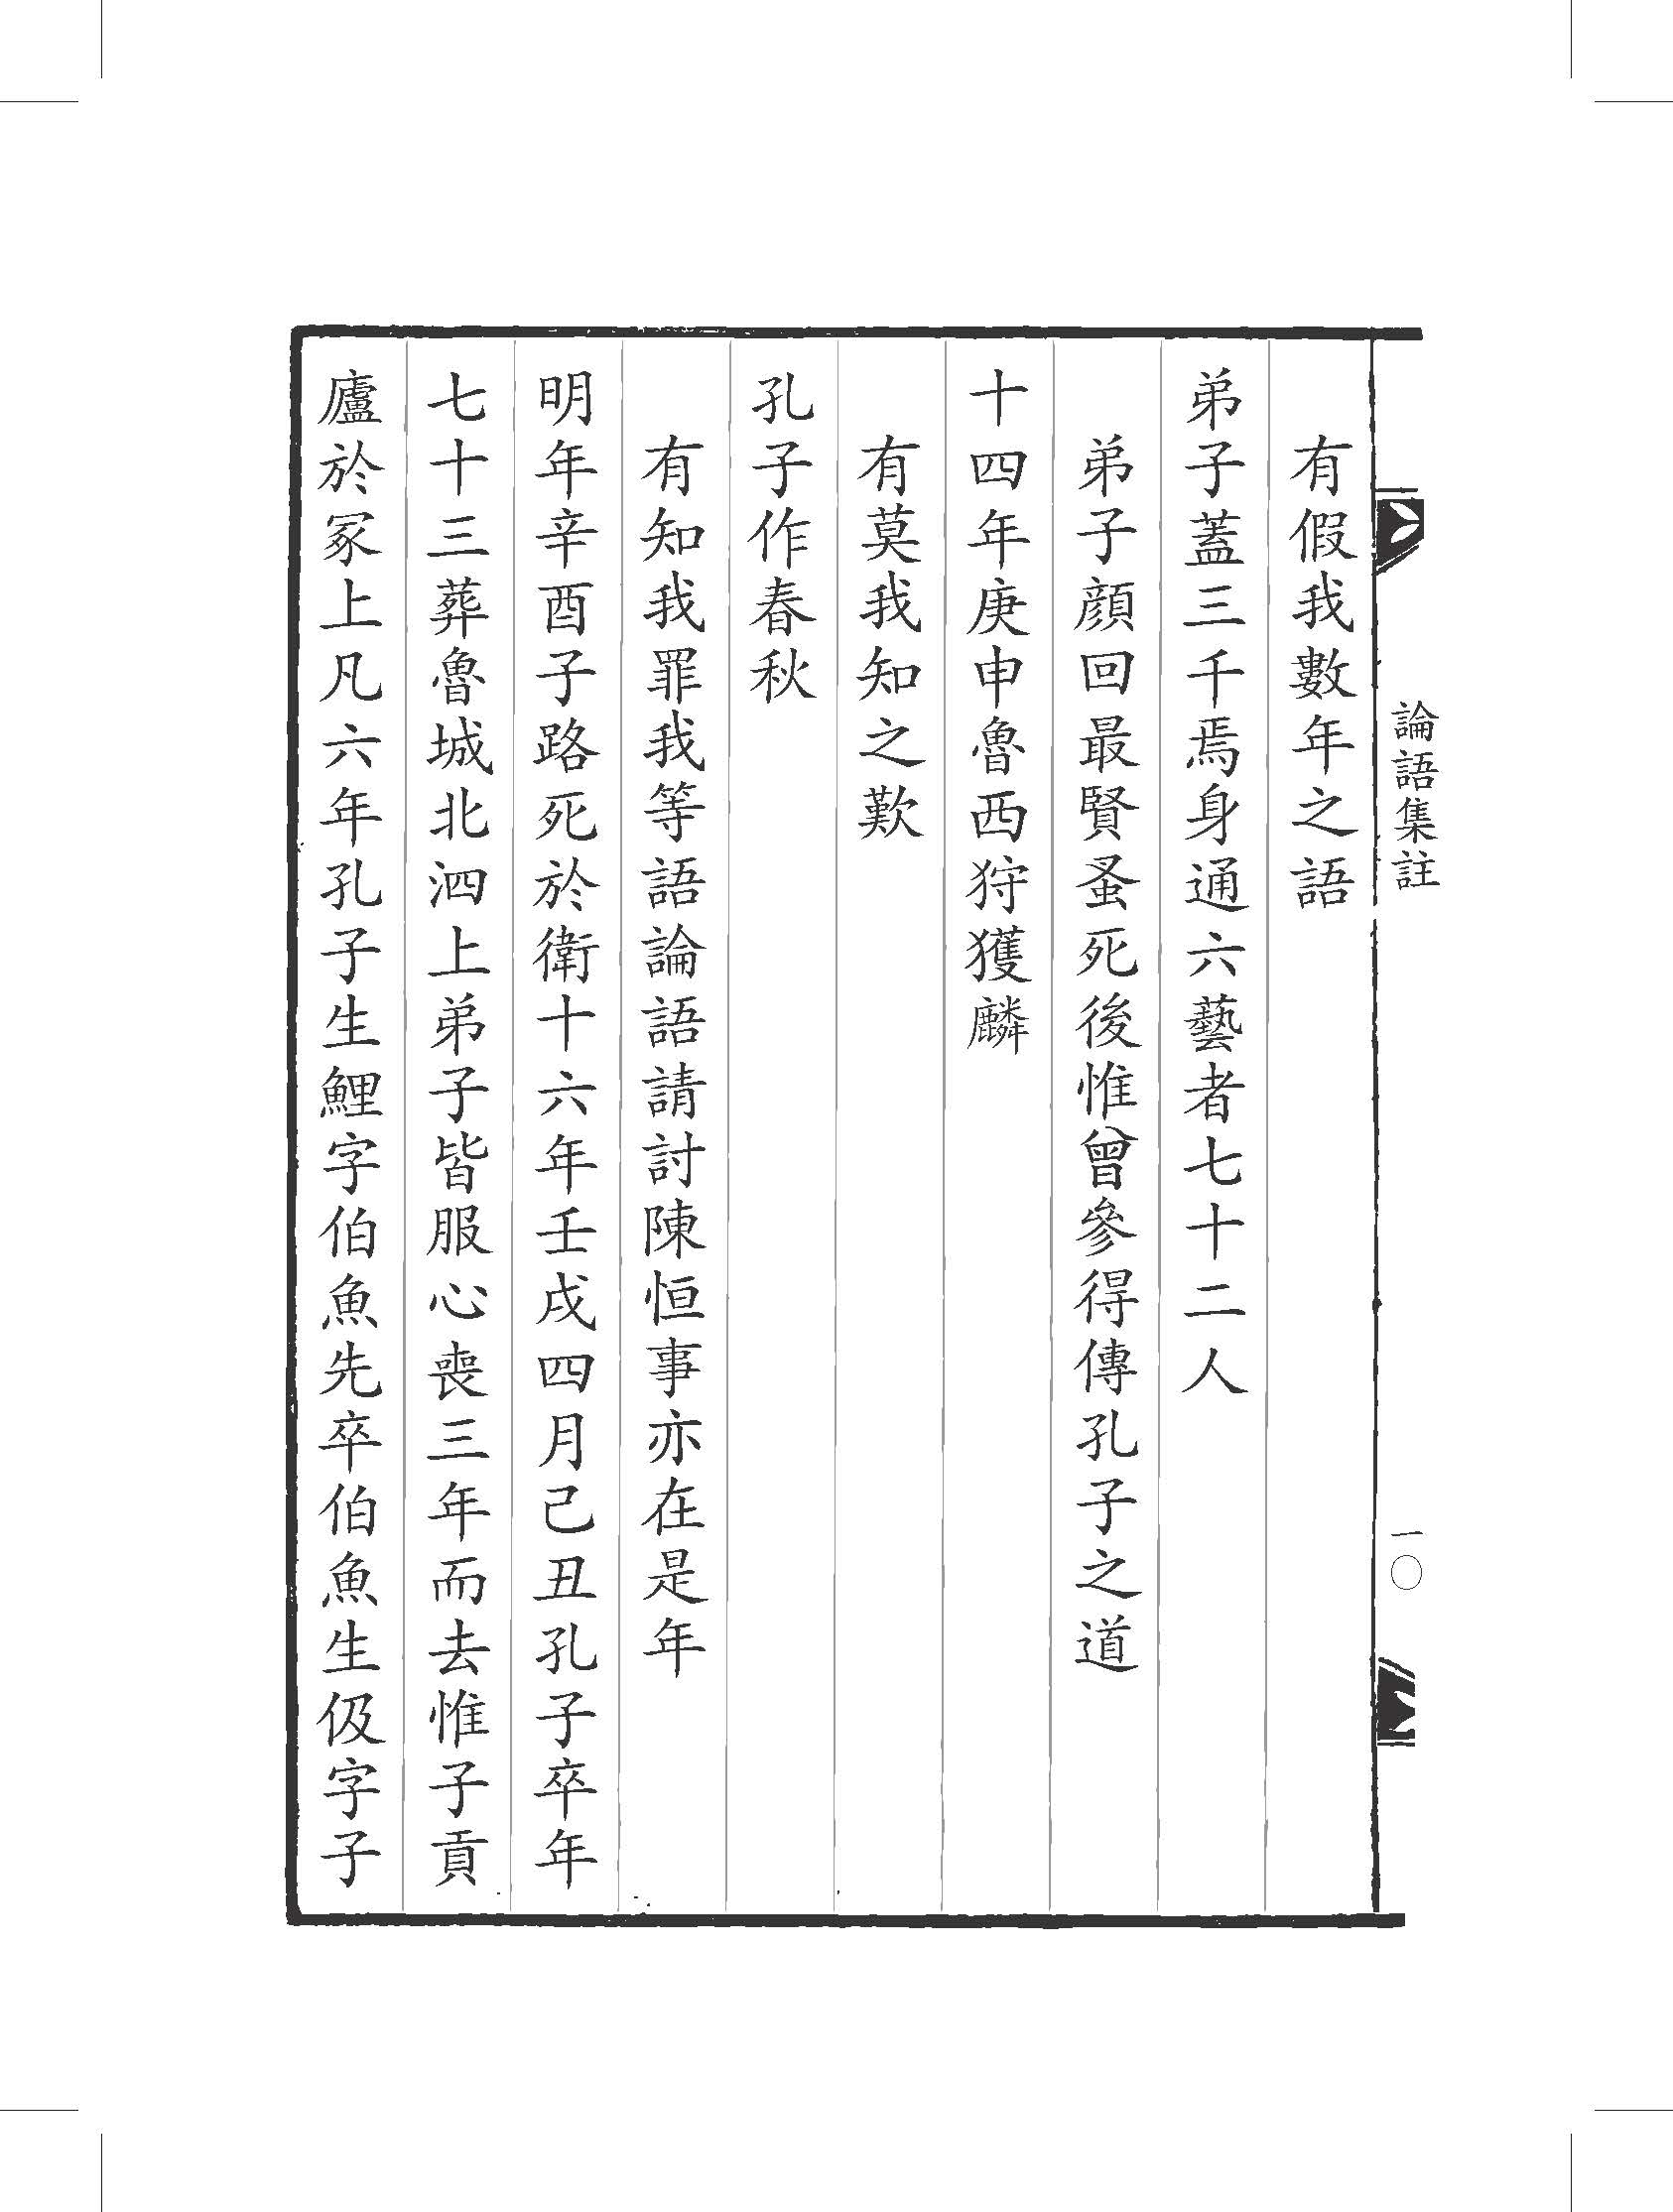 論語集註
一〇
有假我數年之語
弟子蓋三千焉身通六藝者七十二人
弟子顏回最賢蚤死後惟曾參得傳孔子之道
十四年庚申魯西狩獲麟
有莫我知之歎
孔子作春秋
有知我罪我等語論語請討陳恒事亦在是年
明年辛酉子路死於衛十六年壬戌四月己丑孔子卒年
七十三葬魯城北泗上弟子皆服心喪三年而去惟子貢
廬於冢上凡六年孔子生鯉字伯魚先卒伯魚生伋字子